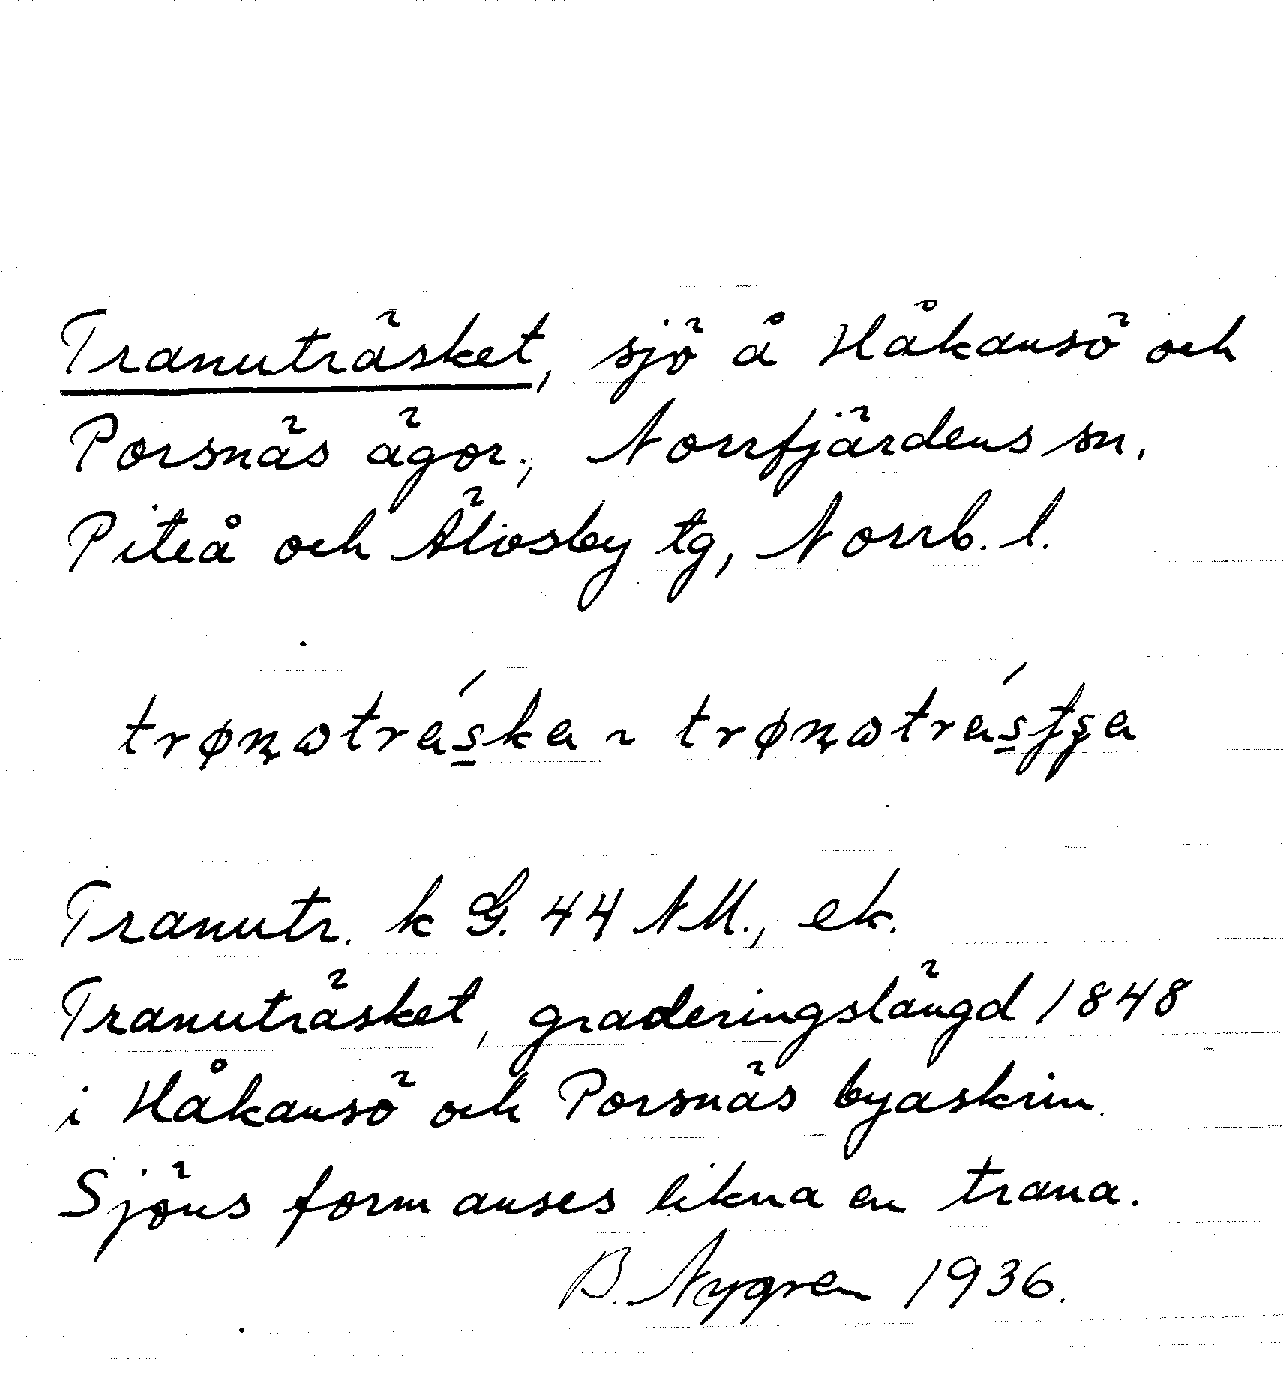 Tranuträsket, sjö å Håkansö och
Porsnäs ägor, Norrfjärdens sn.
Piteå och Älvsby tg, Norrb. l.
trønɷtráska ~ trønɷtrás̱tʂa
Tranutr. k G. 44 NM., ek.
Tranuträsket, graderingslängd 1848
i Håkansö och Porsnäs byaskrin.
Sjöns form anses likna en trana.
B. Nygren 1936.